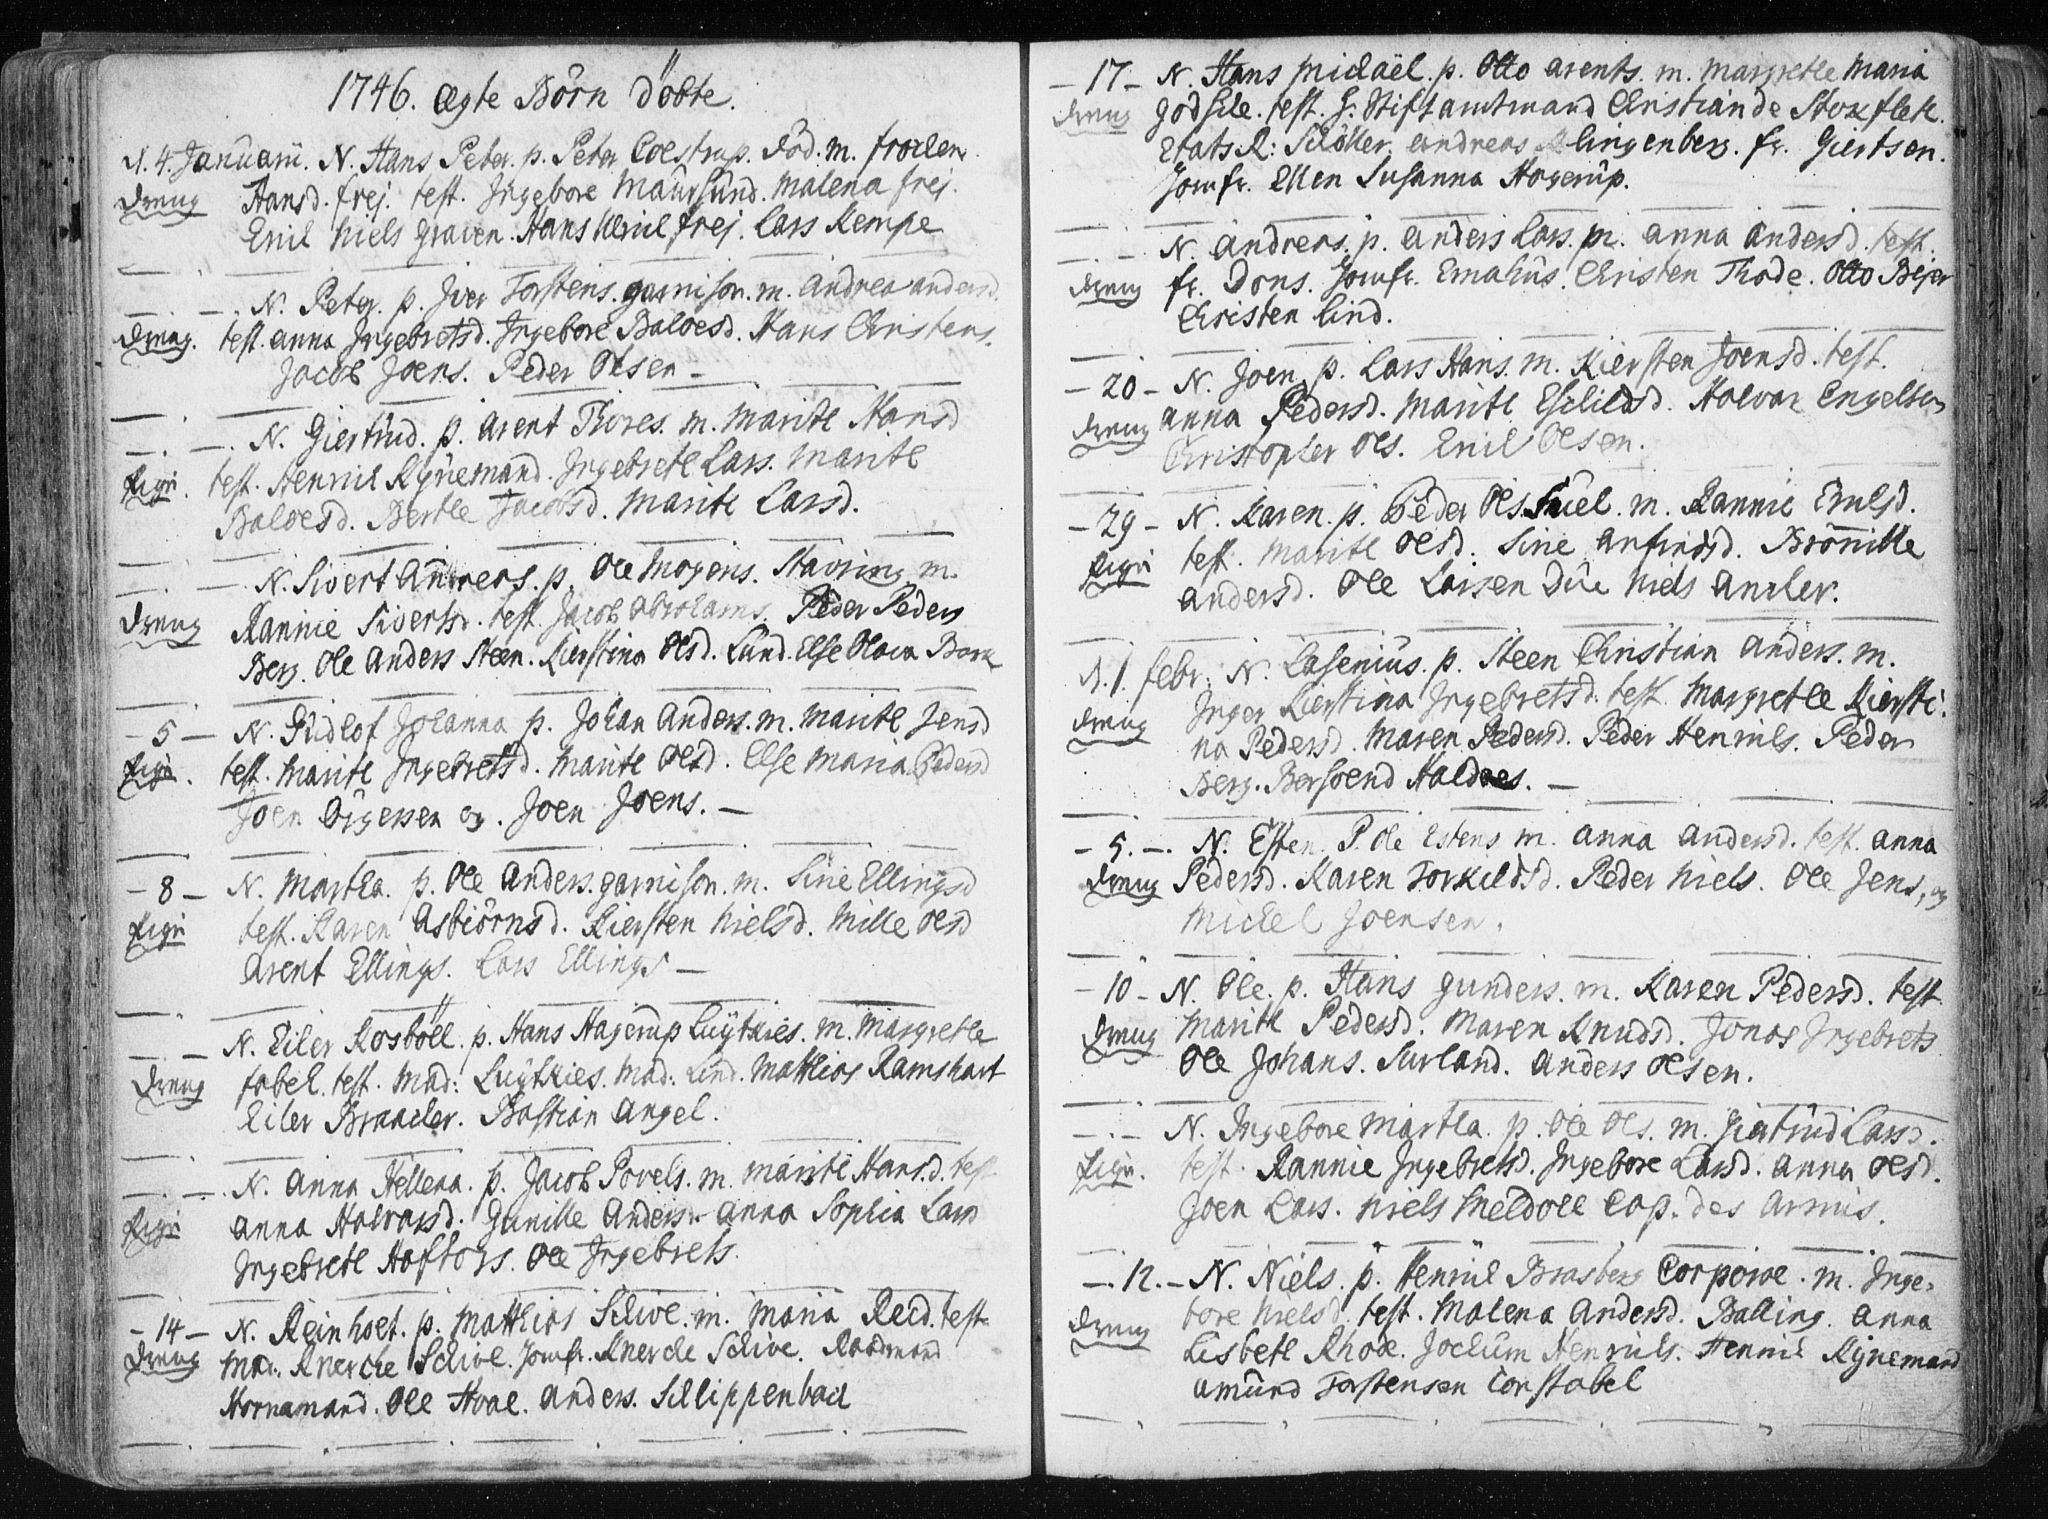 1746. ægte Börn döbte.
d. 4. Januarii. N. Hans Peter. p. Peter Colstrup. död. m. frocken
dreng Hansd. frej. test. Ingebore Maursund. Malena frej.
Eril Niels Graven. Hans Wenil frej. Lars Kempe
- . - N. Peter. p. Iver Torstens. garnison. m. Andrea Andersd.
dreng. test. Anna Ingebretsd. Ingebore Baloesd. Hans Christens.
Jacob Joens. Peder Olsen -
- . - N. Giertrud. p. Arent Thores. m. Marite Hansd
Pige. test. Henrik Rynemand. Ingebrete Lars. Marite
Baloesd. Berthe Jacobsd. Marite Larsd.
- . - N. Sivert Andreas. p. Ole Mogens. Stavring m.
dreng Rannie Sivertsd. test. Jacob Abrahams. Peder Peders
Berg. Ole Anders Steen. Kierstina Olsd. Lund. Else Olava Bork
- 5 - N. Gudlof Johanna p. Johan Anders. m. Marite Jensd
Pige. test. Marite Ingebretsd. Marite Olsd. Else Maria Pedersd
Joen Birgersen og. Joen Joens. -
- 8 - N. Martha. p. Ole Anders. garnison. m. Sine Ellingsd
Pige test. Karen Asbiörnsd. Kiersten Nielsd. Mille Olsd
Arent Ellings. Lars Ellings -
- . - N. Eiler Rosböll. p. Hans Hagerup Luytkies. m. Margrethe
dreng fabel. test. Mad: Luytkies. Mad: Lind. Mathias Ramshart
Eiler Braacler. Bastian Angel.
- . - N. Anna Hellena. p. Jacob Povels. m. Marite Hansd. test
Pige Anna Halvorsd. Gunille Andersd. Anna Sophia Larsd
Ingebrete Haftors. Ole Ingebrets.
- 14 - N. Reinholt. p. Matthias Schive. m. Maria Reed. test
dreng Mad. Knerche Schive. Jomfr. Knerche Schive. Raadmand
Hornemand. Ole Hoal. Anders. Schlippenbach
- 17 - N. Hans Michaël. p. Otto Arents. m. Margrethe Maria
dreng Godsche. test. H. Stiftamtmand Christian de Stokfleth.
Etats R: Schöller. Andreas Klingenberg. fr. Giertsen.
Jomfr. Ellen Susanna Hagerup.
- . - N. Andreas. p. Anders Lars. m. Anna Andersd. test.
dreng fr. Dons. Jomfr. Emahus. Christen Thode. Otto Bejer
Christen Lind.
- 20 - N. Joen. p. Lars Hans. m. Kiersten Joensd. test.
dreng Anna Pedersd. Marite Eschildsd. Halvor Engelsen
Christopher Ols. Eril Olsen.
- 29 - N. Karen. p. Peder Ols. Suel. m. Rannie Erilsd.
Pige test. Marite Olsd. Sine Anfindsd. Brönille
Andersd. Ole Larsen Due Niels Ancler.
d. 1. febr. N. Casenius. p. Steen Christian Anders. m.
dreng Inger Kierstina Ingebretsd. test. Margrethe Kiersti-
na Pedersd. Maren Pedersd. Peder Henriks. Peder
Berg. Bersvend Haldoes. -
- 5. - N. Esten. P. Ole Estens m. Anna Andersd. test. Anna
dreng Pedersd. Karen Torkildsd. Peder Niels. Ole Jens, og
Michel Joensen.
- 10 - N. Ole. p. Hans Gunders. m. Karen Pedersd. test
dreng Marite Pedersd. Maren Knudsd. Jonas Ingebrets
Ole Johans. Surland. Anders Olsen.
- . - N. Ingebore Martha. p. Ole Ols. m. Giertrud Larsd.
Pige. test. Rannie Ingebretsd. Ingebore Larsd. Anna Olsd.
Joen Lars. Niels Meldoll Cap. des Armis.
- 12. - N. Niels. p. Henrik Brasberg Corporal. m. Inge-
dreng bore Nielsd. test. Malena Andersd. Balling. Anna
Lisbeth Rhode. Jochum Henriks. Henrik Rynemand
Amund Torstensen Constabel